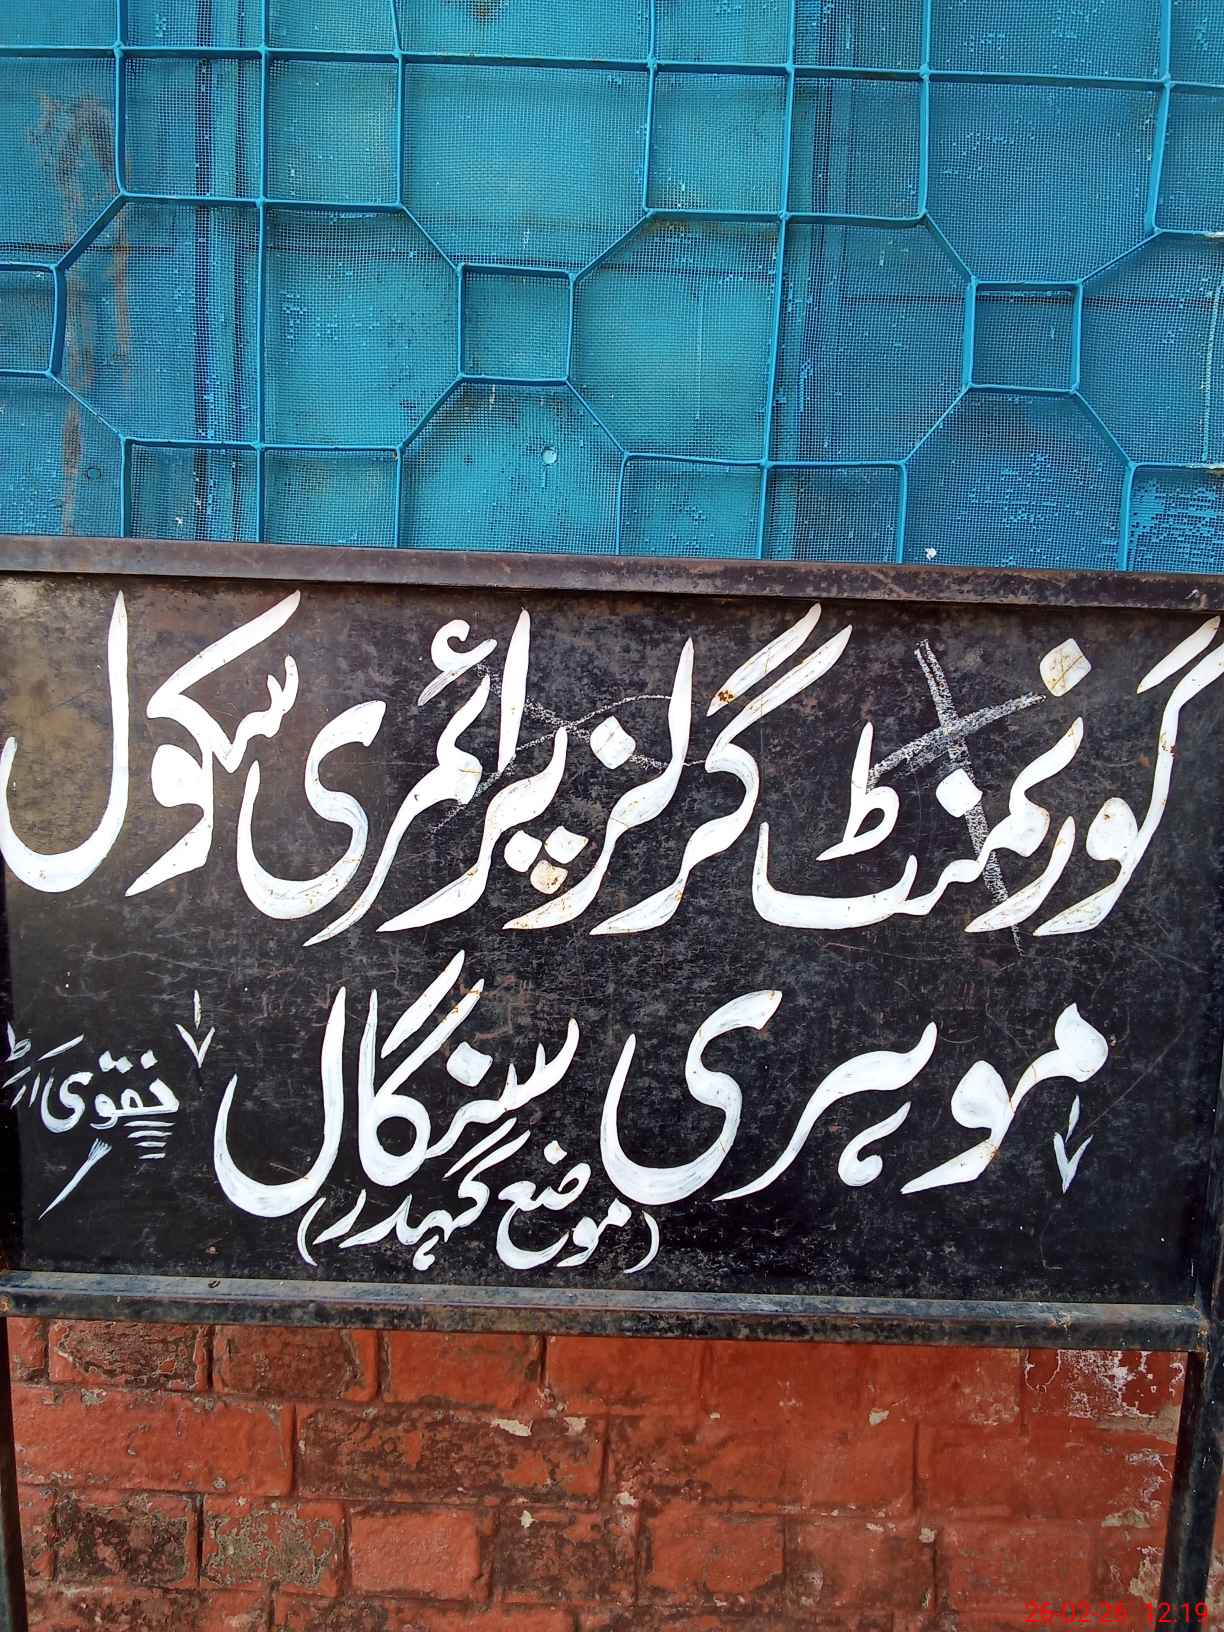 گورنمنٹ گرلز پرائمری سکول
موہری سنگال
(موضع گہدر)
نقوی آرٹ
26-02-26 12:19